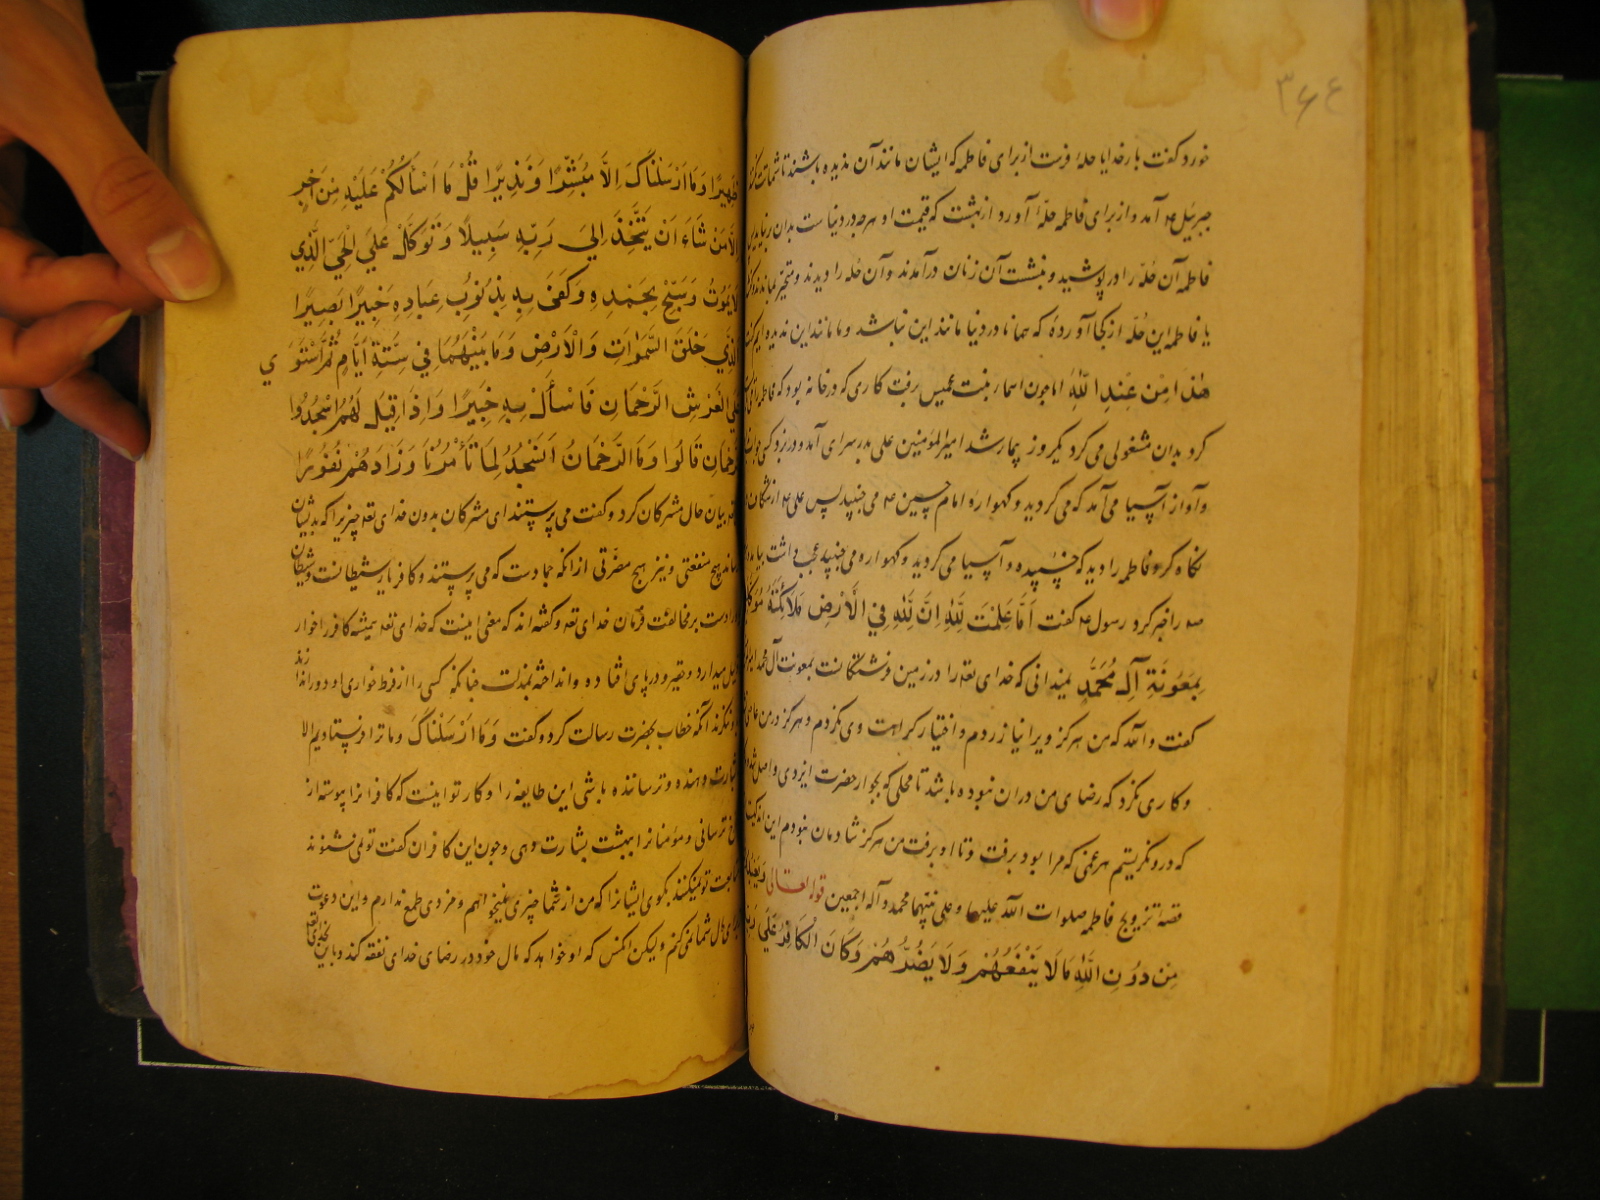 ۳۶۴
خورد کفت بار خدایا حله فرست از برای فاطمه که ایشان مانند آن ندیده باشند تا شماتت
جبرئیل ع آمد و از برای فاطمه حلّه آورد از بهشت که قیمت او هرچه در دنیاست بدان
فاطمه آن حُلّه را در پوشید و بنشست آن زنان درآمدند و آن حُله را دیدند و متحیر بماندند
یا فاطمه این حُلّه از کجا آوردهٔ که همانا در دنیا مانند این نباشد و ما مانند این ندیده ایم
هٰذا مِن عِندِ اللهِ اما چون اسما بنت عمیس برفت کاری که در خانه بود که فاطمه
کرد بدان مشغولی می کرد یکروز بیمار شد امیرالمؤمنین علی بدر سرای آمد و در بزد کسی
و آواز آسیا می آمد که می کردید و کهواره امام حسین ع می جنبید پس علی ع از
نکاه کرد فاطمه را دید که خسپیده و آسیا می کردید و کهواره می جنبید عجب داشت
را خبر کرد رسول ع کفت اَمَا عَلِمْتَ لِلّٰهِ اِنَّ لِلّٰهِ فِی الْاَرْضِ مَلَائِکَةً
بِمَعُونَةِ آلِ مُحَمَّدٍ نمیدانی که خدای تعه را در زمین فرشتکانست بمعونت آل محمد
کفت والله که من هرکز ویرا نیازردم و اختیار کراهت وی نکردم و هرکز در من
و کاری نکرد که رضای من در آن نبوده باشد تا محلی که بجوار حضرت ایزدی واصل
که درو نکریستم هر غمی که مرا بود برفت و تا او برفت من هرکز شادمان نبودم این
قصه تزویج فاطمه صلوات الله علیها و علی نبیها محمد و آله اجمعین قوله تعالی
مِن دُونِ اللّٰهِ مَالَا یَنْفَعُهُمْ وَلَا یَضُرُّهُمْ وَکَانَ الْکَافِرُ عَلَیٰ
ظَهِیرًا وَمَا اَرْسَلْنَاکَ اِلَّا مُبَشِّرًا وَنَذِیرًا قُلْ مَا اَسْأَلُکُمْ عَلَیْهِ مِنْ اَجْرٍ
اِلَّا مَنْ شَاءَ اَنْ یَتَّخِذَ اِلیَ رَبِّهِ سَبِیلًا وَتَوَکَّلْ عَلَی الْحَیِّ الَّذِی
لَا یَمُوتُ وَسَبِّحْ بِحَمْدِهِ وَکَفَیٰ بِهِ بِذُنُوبِ عِبَادِهِ خَبِیرًا بَصِیرًا
الَّذِی خَلَقَ السَّمٰوَاتِ وَالْاَرْضَ وَمَا بَیْنَهُمَا فِی سِتَّةِ اَیَّامٍ ثُمَّ اسْتَوَی
عَلَی الْعَرْشِ الرَّحْمَانِ فَاسْأَلْ بِهِ خَبِیرًا وَاِذَا قِیلَ لَهُمُ اسْجُدُوا
لِلرَّحْمَانِ قَالُوا وَمَا الرَّحْمَانُ اَنَسْجُدُ لِمَا تَأْمُرُنَا وَزَادَهُمْ نُفُورًا
بیان حال مشرکان کرد و کفت می پرستند ای مشرکان بدون خدای تعه چیزیرا که بدیشان
رساند هیچ منفعتی و نیز هیچ مضرّتی از آنکه جمادست که می پرستند و کافر یار شیطانست
بر مخالفت فرمان خدای تعه و کفته اند که معنی اینست که خدای تعه همیشه کافر را خوار
میدارد و حقیر و در پای افتاده و انداخته بمذلت چنانکه کسی را از فرط خواری او دور اندازند
و ننکرند آنکه خطاب بحضرت رسالت کرد و کفت وَمَا اَرْسَلْنَاکَ و ما ترا نفرستادیم الا
بشارت دهنده و ترساننده باشی این طایفه را و کار تو اینست که کافرانرا پیوسته از
ترسانی و مؤمنانرا ببهشت بشارت دهی و چون این کافران کفت تو نمی شنوند
متابعت تو نمیکنند بکوی ایشانرا که من از شما چیزی نمیخواهم و مزدی طمع ندارم و این دعوت
برای مال شما نمی کنم و لیکن آنکس که او خواهد که مال خود در رضای خدای نفقه کند و باین